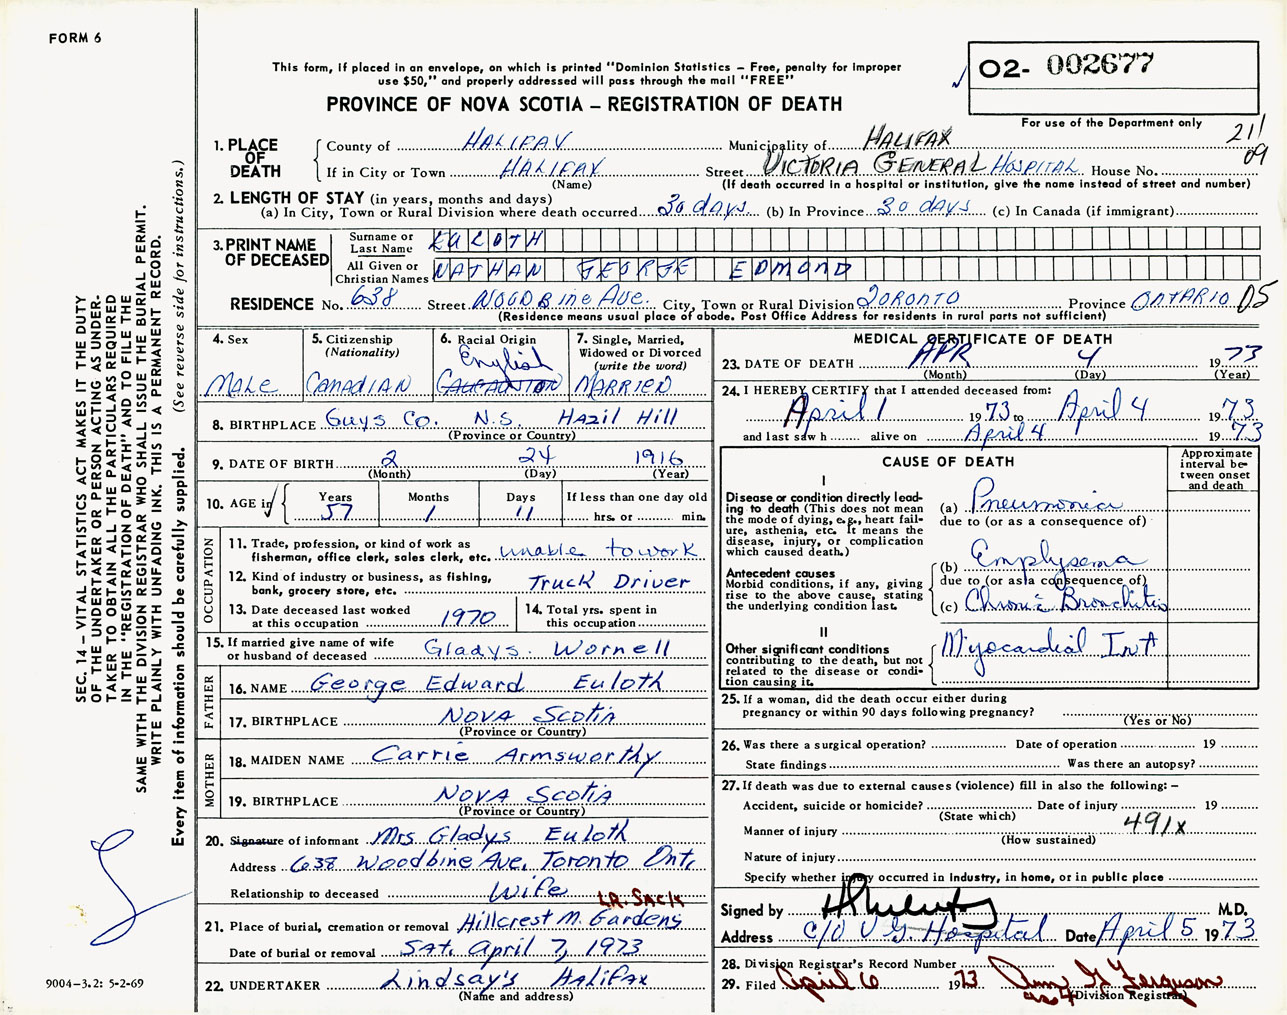 FORM 6
This form, if placed in an envelope, on which is printed "Dominion Statistics – Free, penalty for improper
use $50," and properly addressed will pass through the mail "FREE"
PROVINCE OF NOVA SCOTIA – REGISTRATION OF DEATH
O2- 002677
For use of the Department only
211
09
1. PLACE OF DEATH
County of HALIFAX Municipality of HALIFAX
If in City or Town HALIFAX Street VICTORIA GENERAL HOSPITAL House No.
(Name) (If death occurred in a hospital or institution, give the name instead of street and number)
2. LENGTH OF STAY (in years, months and days)
(a) In City, Town or Rural Division where death occurred 30 days (b) In Province 30 days (c) In Canada (if immigrant)
3. PRINT NAME OF DECEASED
Surname or Last Name EULOTH
All Given or Christian Names NATHAN GEORGE EDMOND
RESIDENCE No. 638 Street WOODBINE AVE. City, Town or Rural Division TORONTO Province ONTARIO 05
(Residence means usual place of abode. Post Office Address for residents in rural parts not sufficient)
4. Sex
MALE
5. Citizenship
(Nationality)
CANADIAN
6. Racial Origin
English
CAUCAUTION
7. Single, Married,
Widowed or Divorced
(write the word)
MARRIED
8. BIRTHPLACE Guys Co. N.S. Hazil Hill
(Province or Country)
9. DATE OF BIRTH 2 24 1916
(Month) (Day) (Year)
10. AGE in
Years Months Days If less than one day old
57 1 11 hrs. or min.
OCCUPATION
11. Trade, profession, or kind of work as
fisherman, office clerk, sales clerk, etc. unable to work
12. Kind of industry or business, as fishing,
bank, grocery store, etc. Truck Driver
13. Date deceased last worked
at this occupation 1970
14. Total yrs. spent in
this occupation
15. If married give name of wife
or husband of deceased Gladys. Wornell
FATHER
16. NAME George Edward Euloth
17. BIRTHPLACE NOVA SCOTIA
(Province or Country)
MOTHER
18. MAIDEN NAME Carrie Armsworthy
19. BIRTHPLACE NOVA SCOTIA
(Province or Country)
20. Signature of informant Mrs. Gladys Euloth
Address 638 Woodbine Ave, Toronto Ont,
Relationship to deceased Wife
LR. SACK
21. Place of burial, cremation or removal Hillcrest M. Gardens
Date of burial or removal SAT. April 7, 1973
22. UNDERTAKER Lindsay's HALIFAX
(Name and address)
MEDICAL CERTIFICATE OF DEATH
23. DATE OF DEATH APR 4 1973
(Month) (Day) (Year)
24. I HEREBY CERTIFY that I attended deceased from:
April 1 1973 to April 4 1973
and last saw h alive on April 4 1973
CAUSE OF DEATH
Approximate
interval be-
tween onset
and death
I
Disease or condition directly lead-
ing to death (This does not mean
the mode of dying, e.g., heart fail-
ure, asthenia, etc. It means the
disease, injury, or complication
which caused death.)
(a) Pneumonia
due to (or as a consequence of)
Antecedent causes
Morbid conditions, if any, giving
rise to the above cause, stating
the underlying condition last.
(b) Emphysema
due to (or as a consequence of)
(c) Chronic Bronchitis
II
Other significant conditions
contributing to the death, but not
related to the disease or condi-
tion causing it.
Myocardial Inf
25. If a woman, did the death occur either during
pregnancy or within 90 days following pregnancy?
(Yes or No)
26. Was there a surgical operation? Date of operation 19
State findings Was there an autopsy?
27. If death was due to external causes (violence) fill in also the following: –
Accident, suicide or homicide? Date of injury 19
(State which)
Manner of injury 491x
(How sustained)
Nature of injury
Specify whether injury occurred in industry, in home, or in public place
Signed by M.D.
Address c/o V.G. Hospital Date April 5 1973
28. Division Registrar's Record Number
29. Filed April 6 1973 Ann G Ferguson
(Division Registrar)
SEC. 14 – VITAL STATISTICS ACT MAKES IT THE DUTY
OF THE UNDERTAKER OR PERSON ACTING AS UNDER-
TAKER TO OBTAIN ALL THE PARTICULARS REQUIRED
IN THE "REGISTRATION OF DEATH" AND TO FILE THE
SAME WITH THE DIVISION REGISTRAR WHO SHALL ISSUE THE BURIAL PERMIT.
WRITE PLAINLY WITH UNFADING INK. THIS IS A PERMANENT RECORD.
Every item of information should be carefully supplied. (See reverse side for instructions.)
9004-3.2: 5-2-69